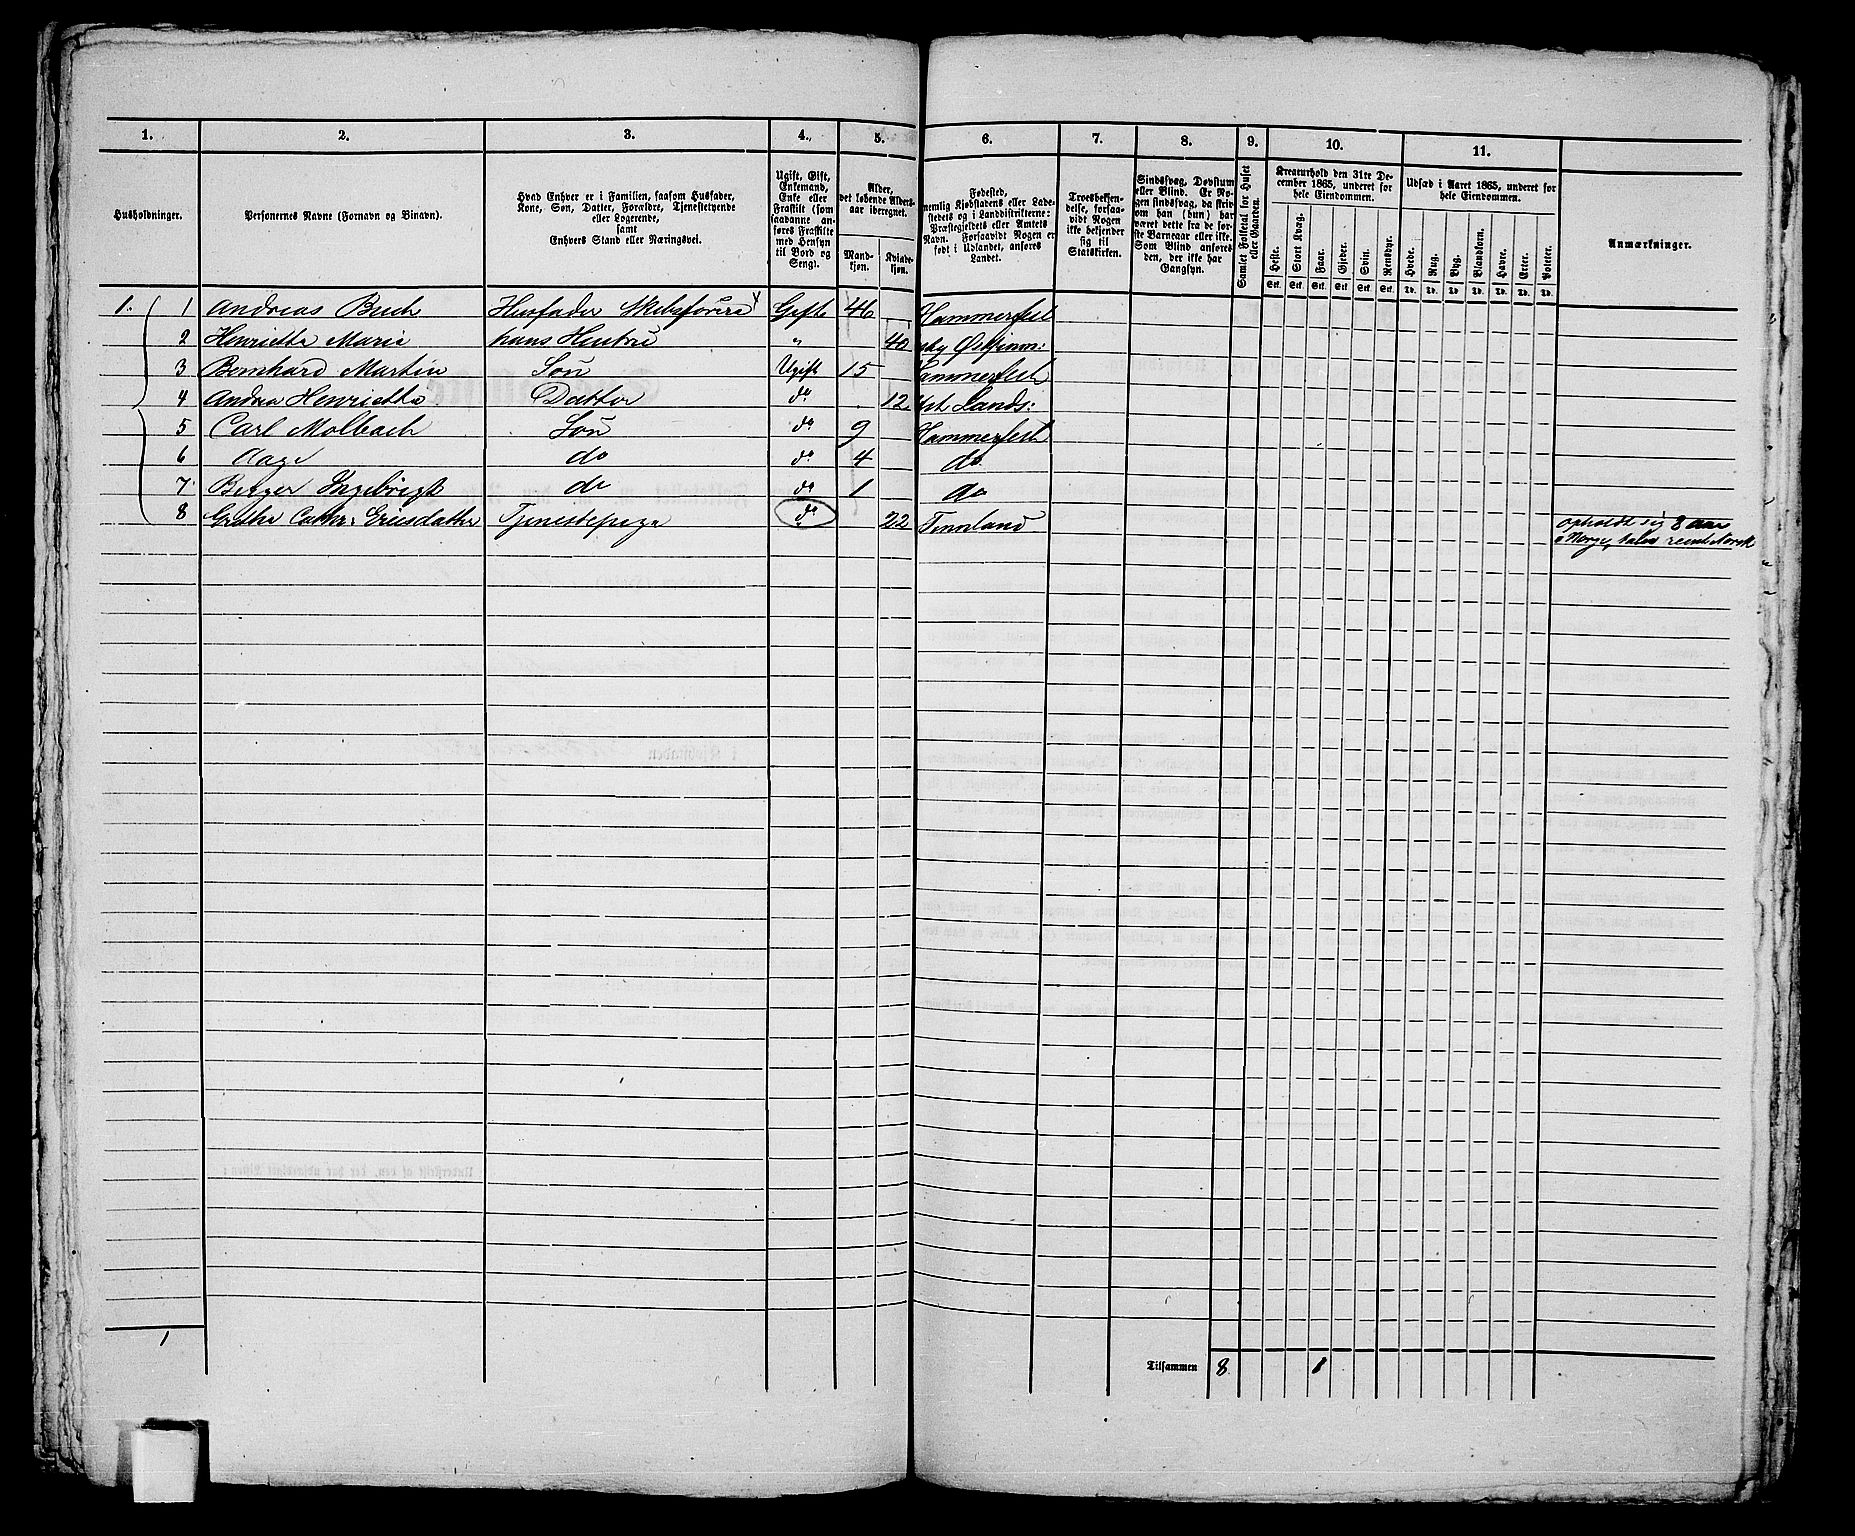 1. 2. 3. 4. 5. 6. 7. 8. 9. 10. 11.
Husholdninger.
Personernes Navne (Fornavn og Binavn).
Hvad Enhver er i Familien, saasom Husfader,
Kone, Søn, Datter, Forældre, Tjenestetyende
eller Logerende,
samt
Enhvers Stand eller Næringsvei.
Ugift, Gift,
Enkemand,
Enke eller
Fraskilt (som
saadanne an-
føres Fraskilte
med Hensyn
til Bord og
Seng).
Alder,
det løbende Alders-
aar iberegnet.
Mand-
kjøn.
Kvinde-
kjøn.
Fødested,
nemlig Kjøbstadens eller Lade-
stedets og i Landdistrikterne:
Præstegjeldets eller Amtets
Navn. Forsaavidt Nogen er
født i Udlandet, anføres
Landet.
Troesbekjen-
delse, forsaa-
vidt Nogen
ikke bekjender
sig til
Statskirken.
Sindssvag, Døvstum
eller Blind. Er No-
gen sindssvag, da skriv
om han (hun) har
været dette fra de før-
ste Barneaar eller ikke.
Som Blind anføres
den, der ikke har
Gangsyn.
Samlet Folketal for Huset
eller Gaarden.
Kreaturhold den 31te De-
cember 1865, underet for
hele Eiendommen.
Heste. Stort Kvæg. Faar. Gjeder. Svin. Rensdyr.
Stk. Stk. Stk. Stk. Stk. Stk.
Udsæd i Aaret 1865, underet for
hele Eiendommen.
Hvede. Rug. Byg. Blandkorn. Havre. Erter. Poteter.
Td. Td. Td. Td. Td. Td. Td.
Anmærkninger.
1. 1 Andreas Buch Husfader Gift 46 Hammerfest
2 Henriette Marie hans Hustru " 40
3 Bernhard Martin Søn Ugift 15 Hammerfest
4 Andrea Henriette Datter do 12
5 Carl Molbach Søn do 9 Hammerfest
6 Aage do do 4 do
7 Berger Ingebrigt do do 1 do
8 Grethe Cathr: Ericsdatter Tjenestepige do 22 Finnland opholdt sig 8 aar
i Norge, taler reent Norsk
1
Tilsammen 8 1